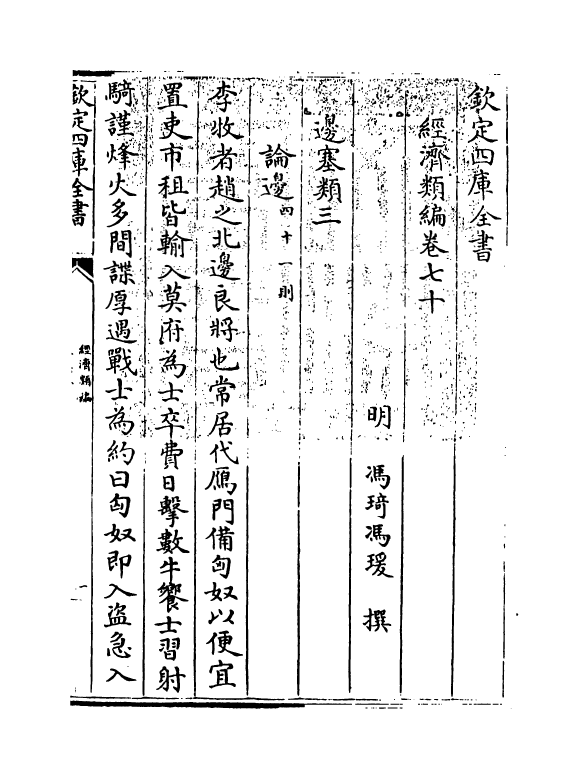 欽定四庫全書
經濟類編卷七十
明 馮琦馮瑗 撰
邊塞類三
論邊四十一則
李牧者趙之北邊良將也常居代鴈門備匈奴以便宜
置吏市租皆輸入莫府為士卒費日擊數牛饗士習射
騎謹烽火多間諜厚遇戰士為約曰匈奴即入盜急入
欽定四庫全書
經濟類編
一